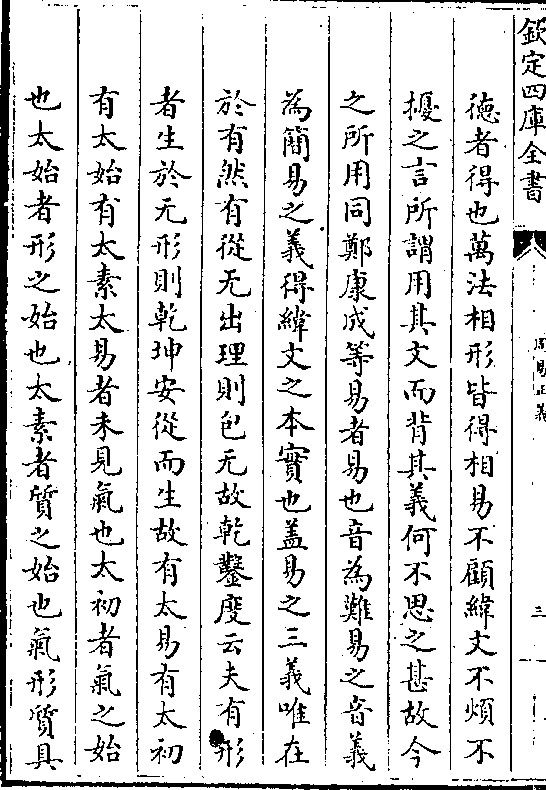 欽定四庫全書
周易正義
三
德者得也萬法相形皆得相易不顧緯文不煩不
擾之言所謂用其文而背其義何不思之甚故今
之所用同鄭康成等易者易也音為難易之音義
為簡易之義得緯文之本實也蓋易之三義唯在
於有然有從无出理則包无故乾鑿度云夫有形
者生於无形則乾坤安從而生故有太易有太初
有太始有太素太易者未見氣也太初者氣之始
也太始者形之始也太素者質之始也氣形質具